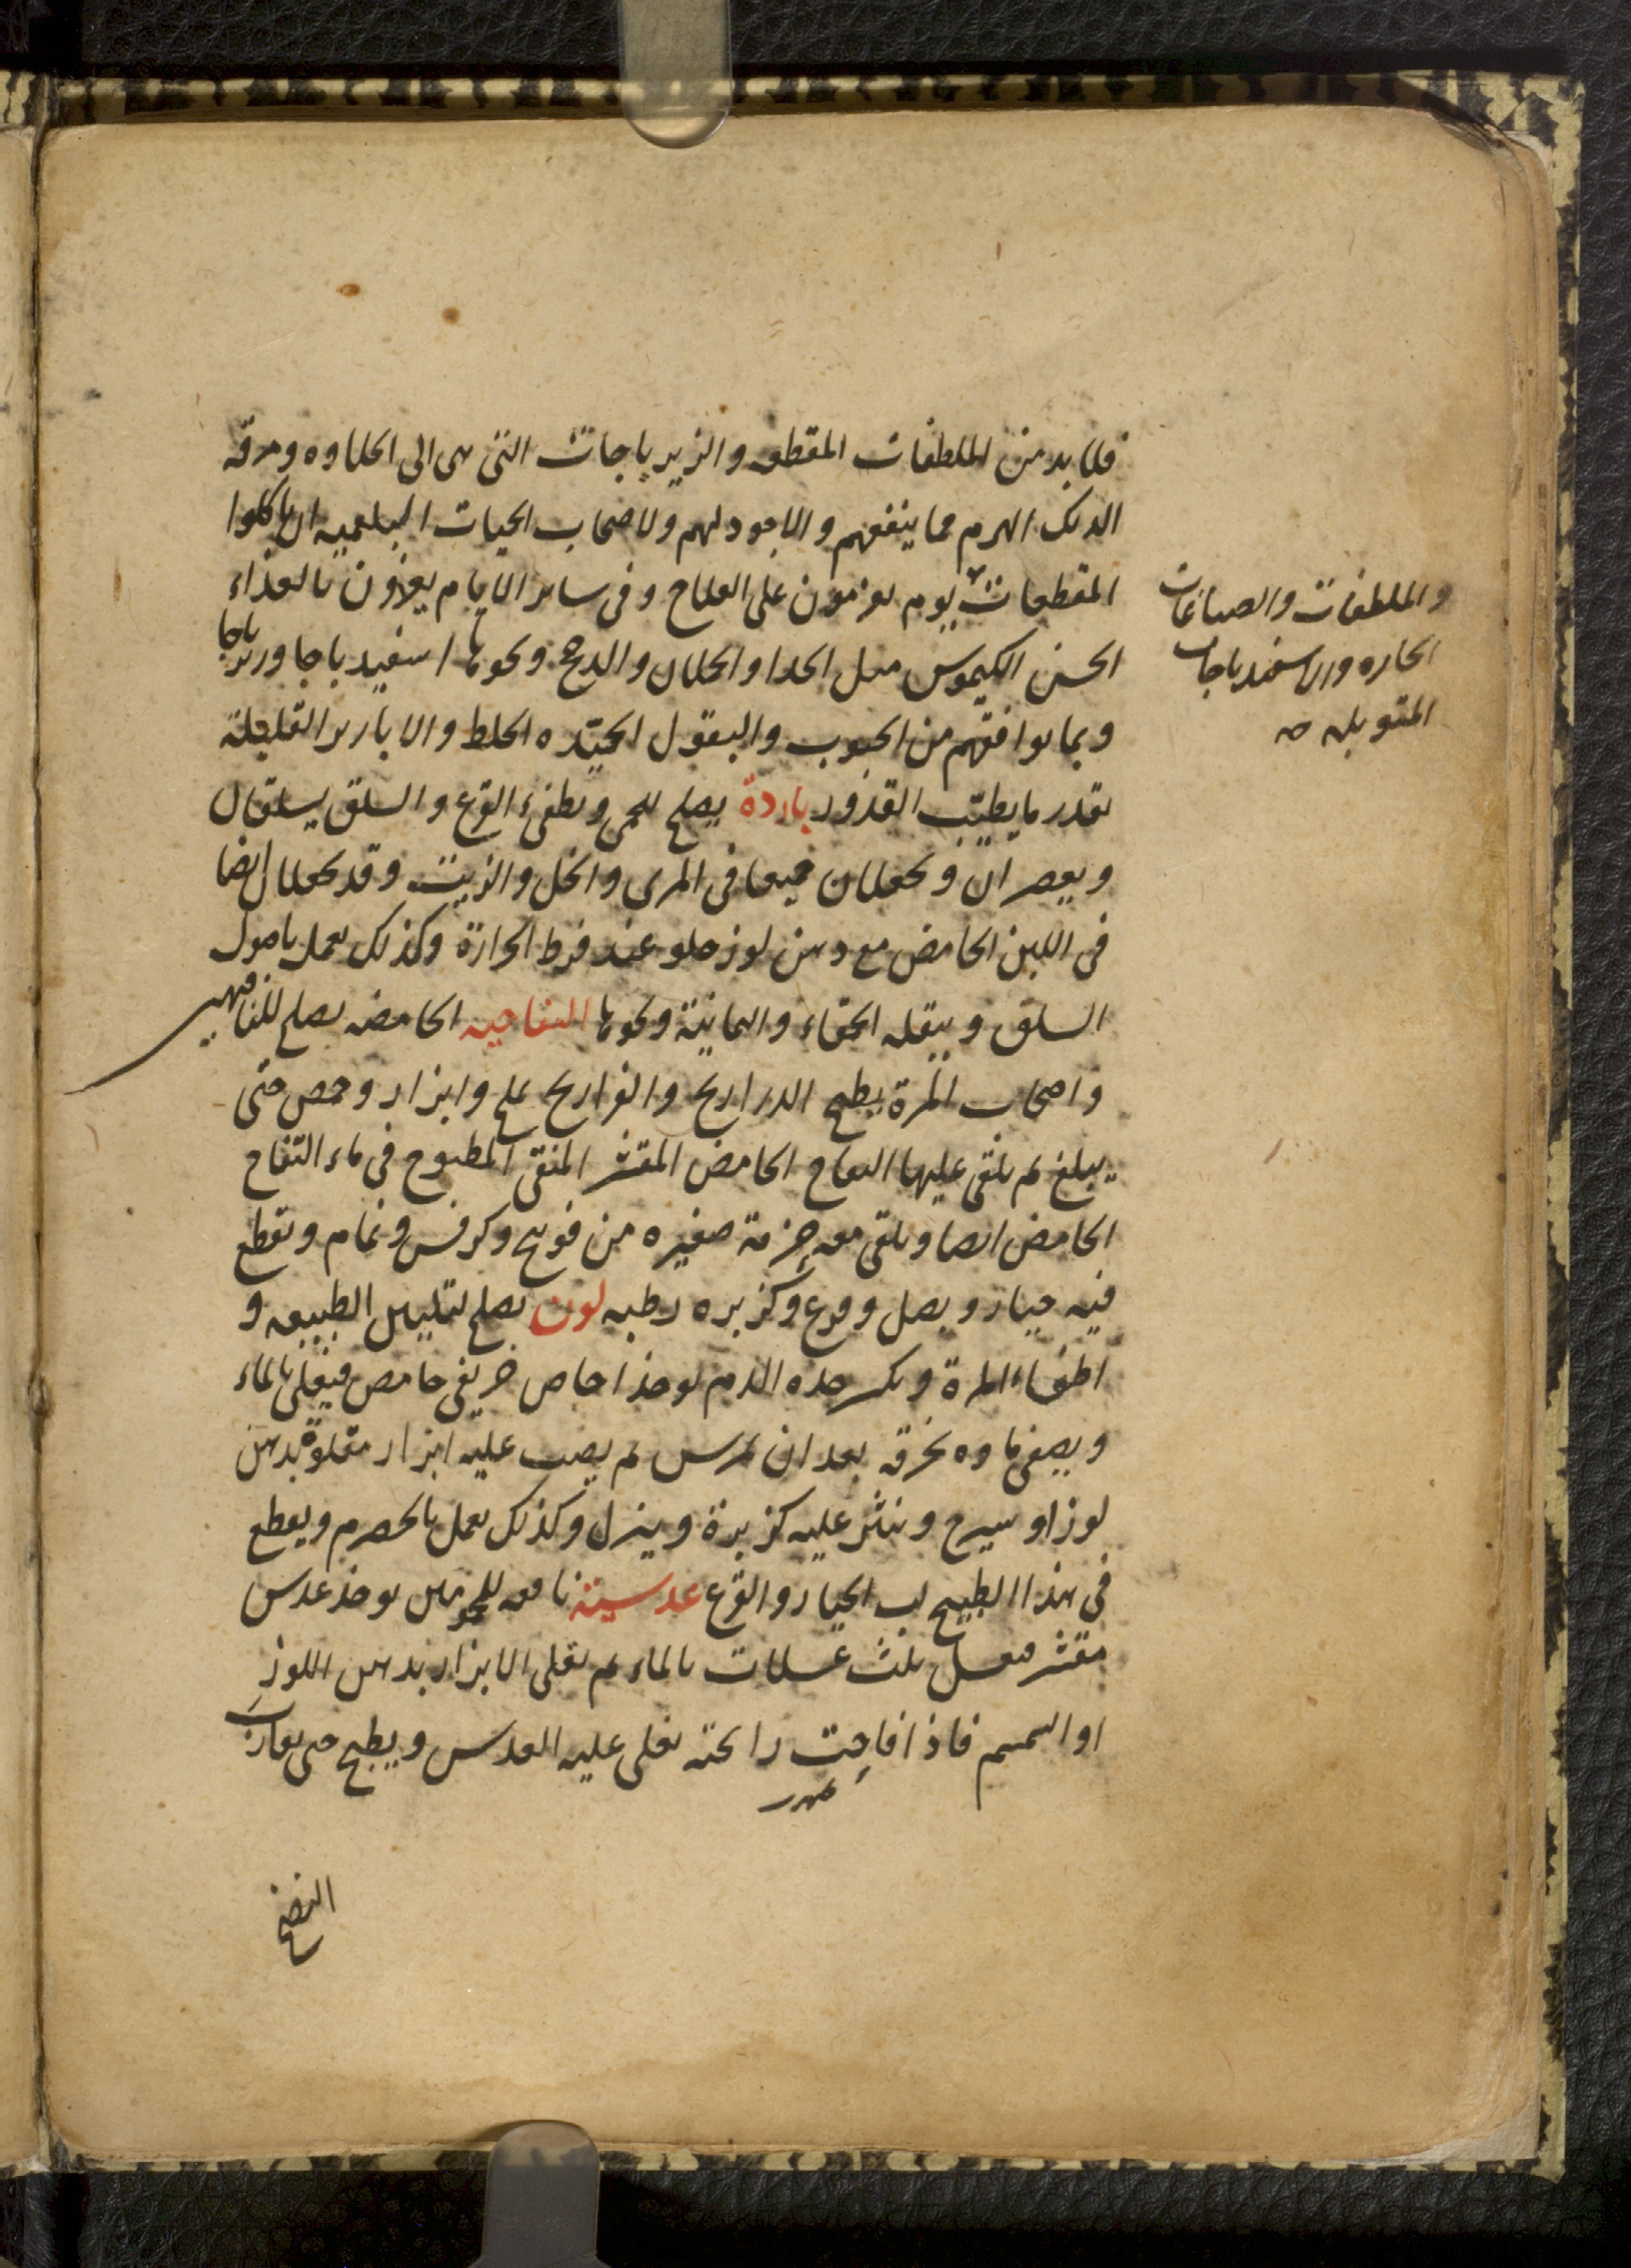 فلا بد من الملطفات المقطعه والزيرباجات التى هى الى الحلاوه ومرقه
الديك الهرم مما ينفعهم والاجود لهم ولاصحاب الحميات البلغميه ان ياكلوا
المقطعات يوم يعزمون على العلاج وفى ساير الايام يغذون بالغذاء
الحسن الكيموس مثل الجدا والحملان والدجج ونحوها اسفيدباجا وزيرباجا
وبما يوافقهم من الحبوب والبقول الجيّده الخلط والابازير القليلة
بقدر ما يطيّب القدور باردة يصلح للحمى ويطفىء القرع والسلق يسلقان
ويعصران ويجعلان جميعا فى المرى والخل والزيت وقد يجعلان ايضا
فى اللبن الحامض مع دهن لوز حلو عند فرط الحرارة وكذلك يعمل باصول
السلق وبقله الحمقاء واليمانية ونحوها التفاحيه الحامضه يصلح للناقهين
واصحاب المرة يطبخ الدراريج والفراريج بملح وابزار وحمص حتى
يبلغ ثم يلقى عليها التفاح الحامض المقشر المنقى المطبوخ فى ماء التفاح
الحامض ايضا ويلقى معه حزمة صغيره من فوتنج وكرفس ونمام ويقطع
فيه خيار وبصل وقرع وكزبره رطبه لون يصلح لتليين الطبيعه و
اطفاء المرة ويكسر حده الدم يوخذ اجاص خريفى حامض فيغلى بالماء
ويصفى ماوه بخرقه بعد ان يمرس ثم يصب عليه ابزار مقلوة بدهن
لوز او سيرج وينثر عليه كزبرة وينزل وكذلك يعمل بالحصرم ويقطع
فى هذا الطبيخ لب الخيار والقرع عدسية نافعه للمحمومين يوخذ عدس
مقشر فيغسل ثلث غسلات بالماء ثم يغلى الابزار بدهن اللوز
او السمسم فاذا فاحت رائحته يغلى عليه العدس ويطبخ حتى يقارب
النضج
والملطفات والصباغات
الحاره والاسفيدباجات
المتوبله صه